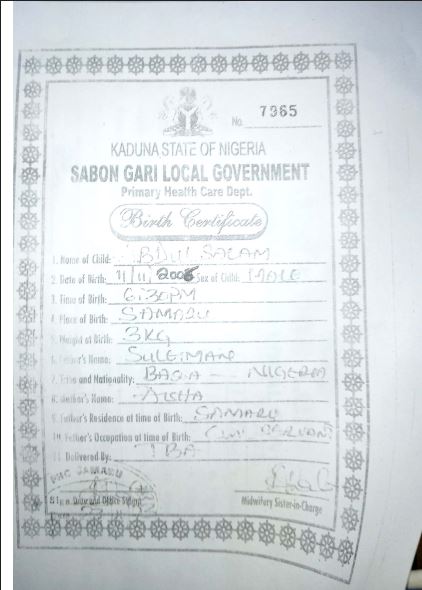 No. 7965
KADUNA STATE OF NIGERIA
SABON GARI LOCAL GOVERNMENT
Primary Health Care Dept.
Birth Certificate
1. Name of Child: BDUL SALAM
2. Date of Birth: 11/11, 2006 Sex of Child: MALE
3. Time of Birth: 6:30PM
4. Place of Birth: SAMARU
5. Weight of Birth: 3KG
6. Father's Name: SULEIMAN
7. Tribe and Nationality: NIGERIA
8. Mother's Name: AISHA
9. Father's Residence at time of Birth: SAMARU
10. Father's Occupation at time of Birth: CIVIL SERVANT
11. Delivered By: TBA
PHC SAMARU
Sign. Date and Office Stamp
Midwifery Sister-in-Charge